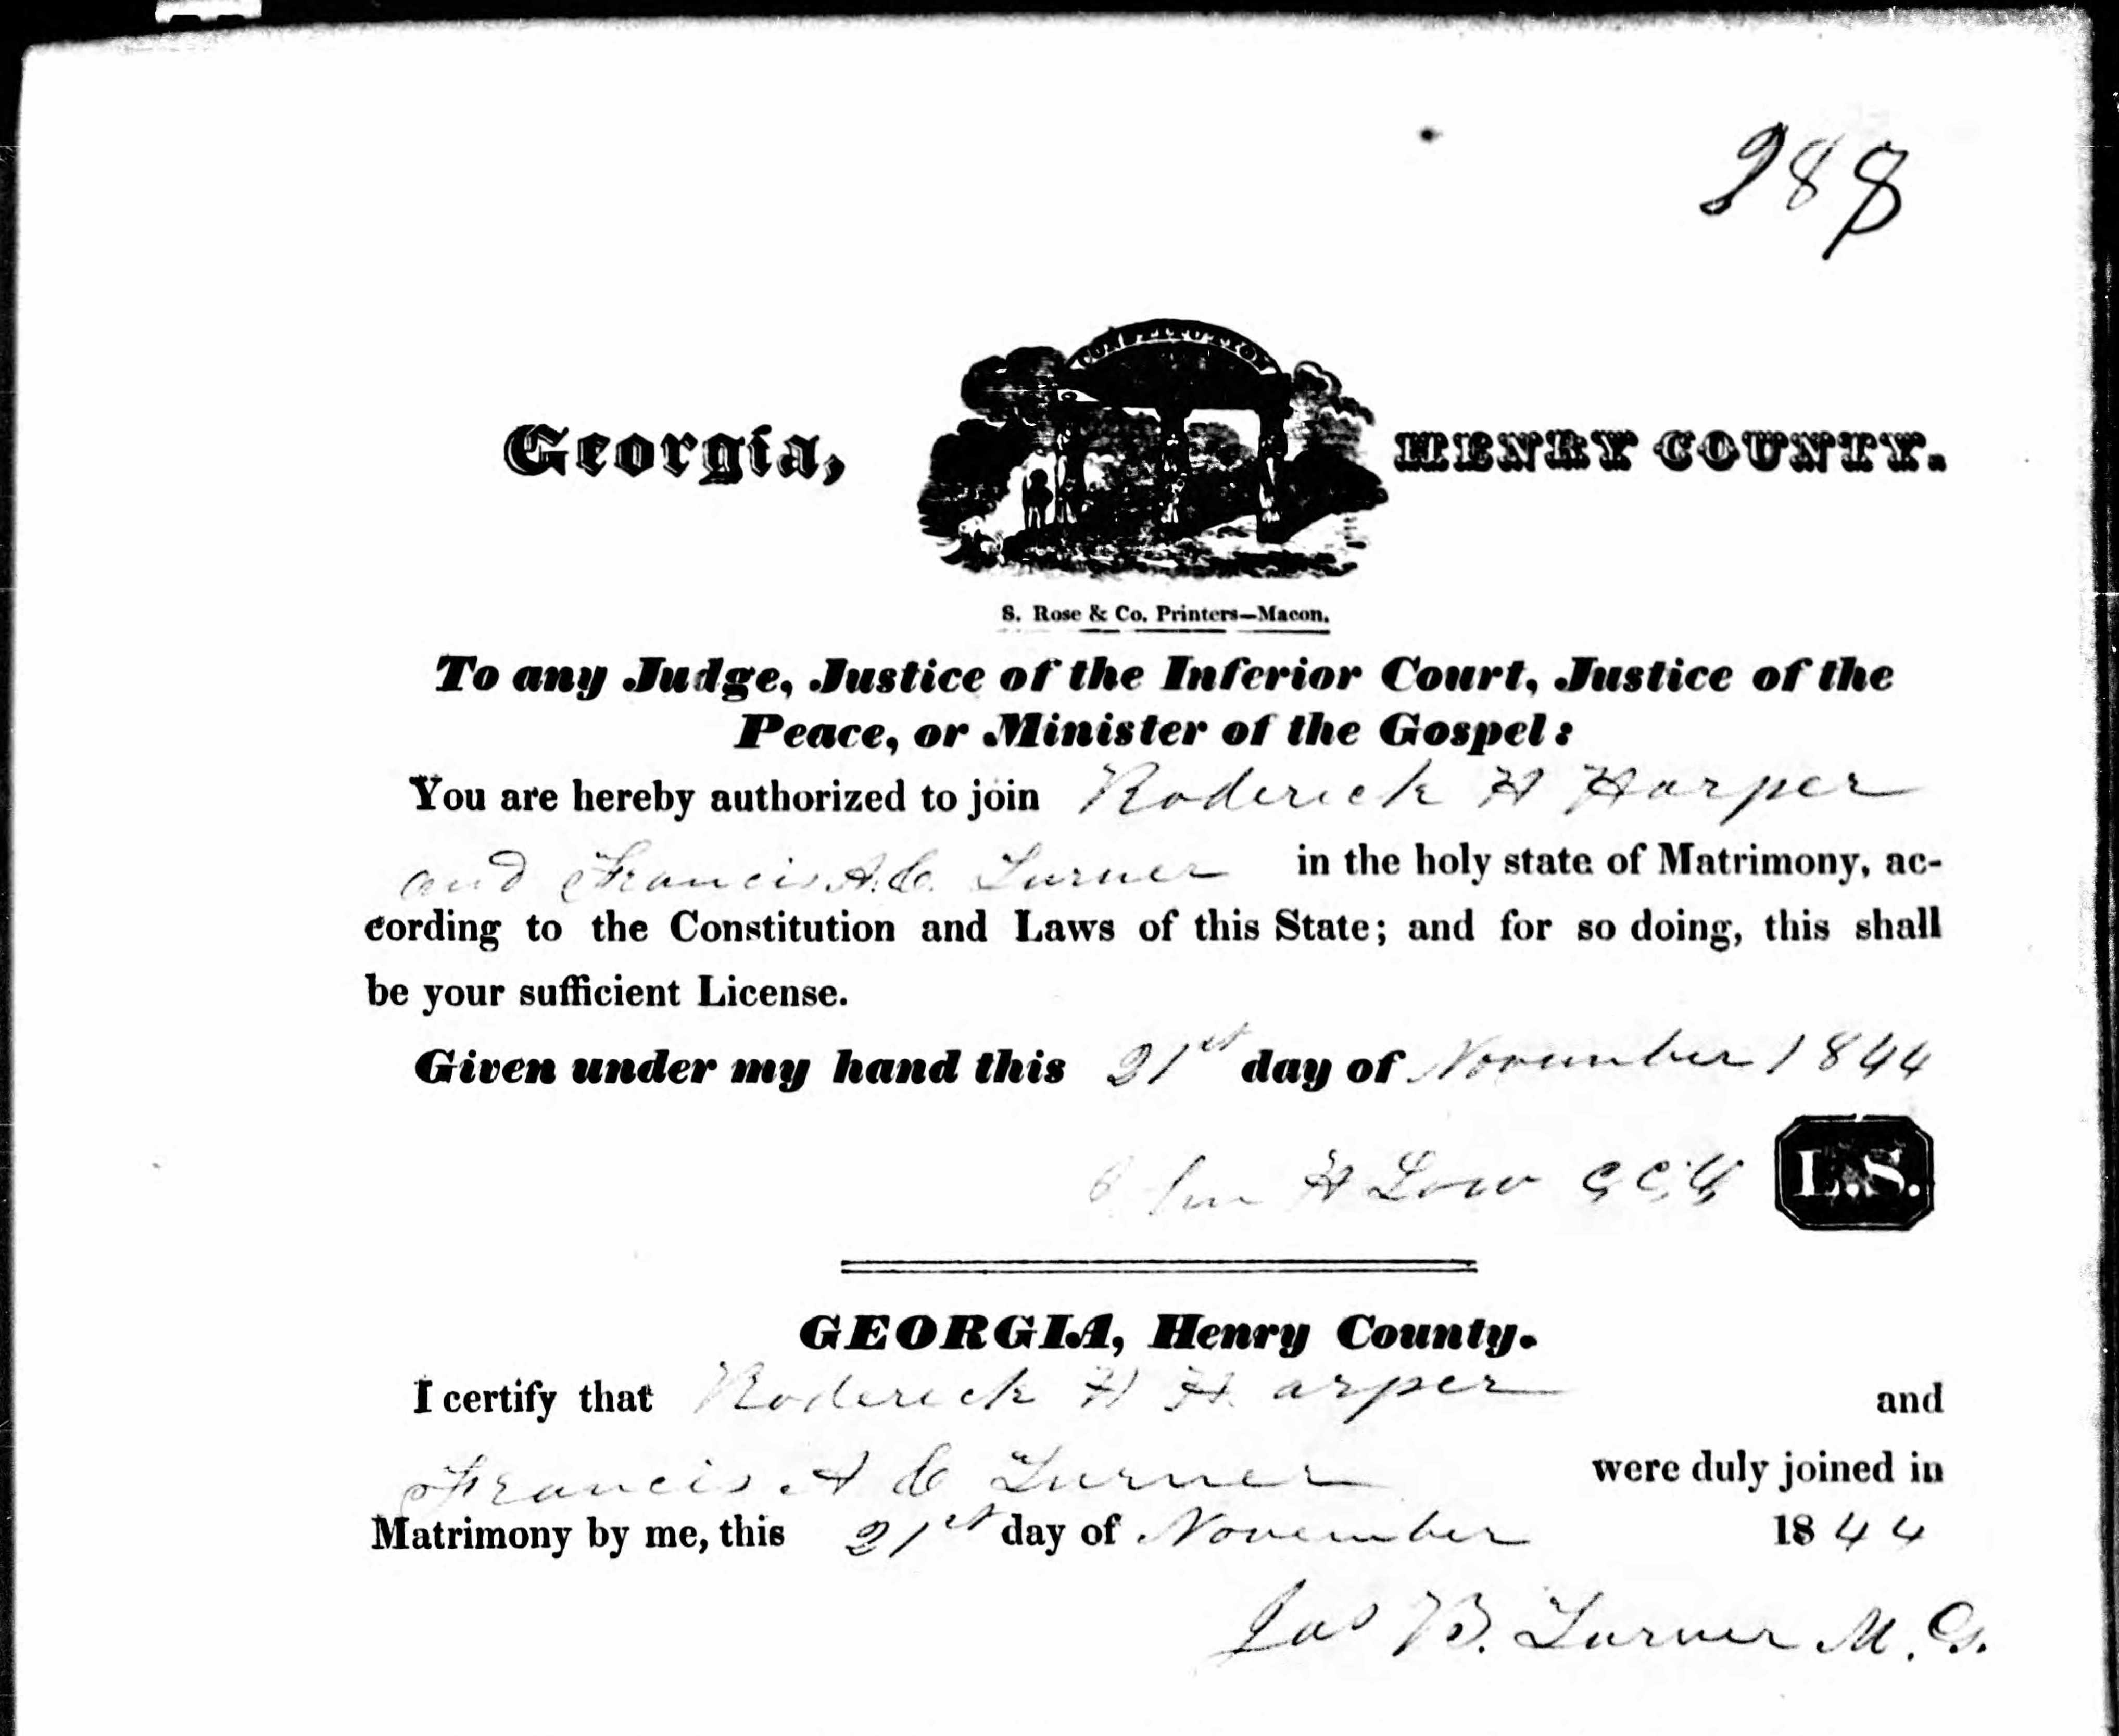 288
CONSTITUTION
Georgia, HENRY COUNTY.
S. Rose & Co. Printers—Macon.
To any Judge, Justice of the Inferior Court, Justice of the
Peace, or Minister of the Gospel:
You are hereby authorized to join Roderick H Harper
and Francis A. C. Turner in the holy state of Matrimony, ac-
cording to the Constitution and Laws of this State; and for so doing, this shall
be your sufficient License.
Given under my hand this 21st day of November 1844
H Low L.S.
GEORGIA, Henry County.
I certify that Roderick H Harper and
Francis A C Turner were duly joined in
Matrimony by me, this 21st day of November 1844
Jas B. Turner M. G.